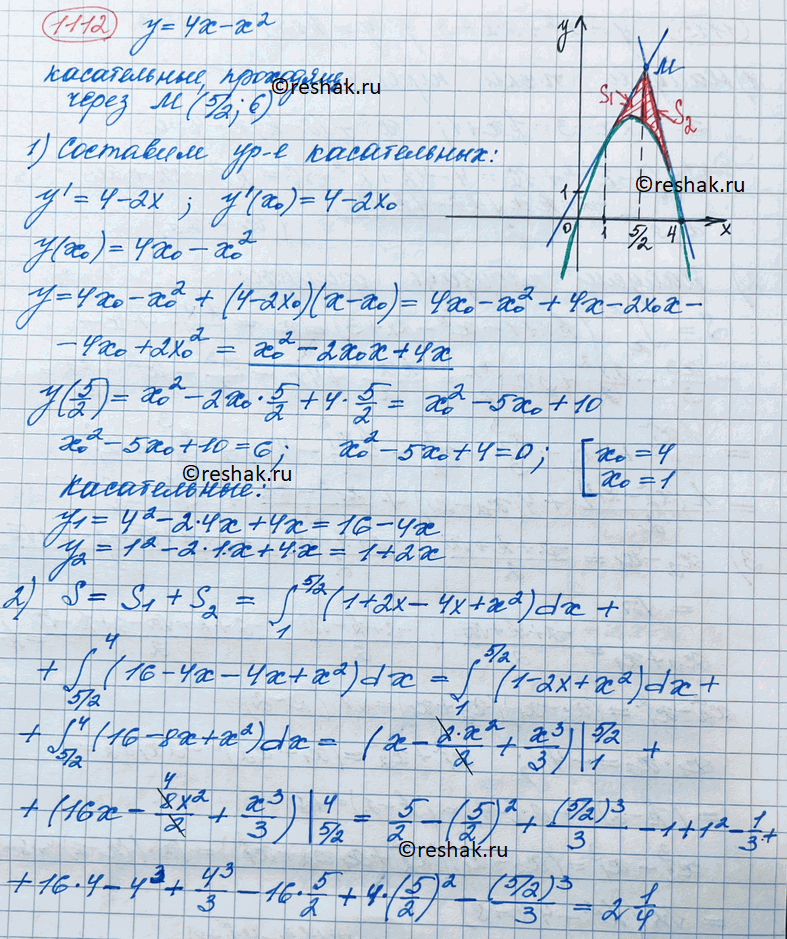 1112 y = 4x - x²
касательные, проходящ.
через M(5/2; 6)
©reshak.ru
1) Составим ур-е касательных:
y' = 4 - 2x ; y'(x₀) = 4 - 2x₀
y(x₀) = 4x₀ - x₀²
y = 4x₀ - x₀² + (4 - 2x₀)(x - x₀) = 4x₀ - x₀² + 4x - 2x₀x -
- 4x₀ + 2x₀² = x₀² - 2x₀x + 4x
y(5/2) = x₀² - 2x₀·5/2 + 4·5/2 = x₀² - 5x₀ + 10
x₀² - 5x₀ + 10 = 6 ; x₀² - 5x₀ + 4 = 0 ; [x₀ = 4
x₀ = 1
©reshak.ru
касательные:
y₁ = 4² - 2·4x + 4x = 16 - 4x
y₂ = 1² - 2·1·x + 4·x = 1 + 2x
2) S = S₁ + S₂ = ∫₁^(5/2) (1 + 2x - 4x + x²)dx +
+ ∫_(5/2)^4 (16 - 4x - 4x + x²)dx = ∫₁^(5/2) (1 - 2x + x²)dx +
+ ∫_(5/2)^4 (16 - 8x + x²)dx = (x - 2·x²/2 + x³/3)|₁^(5/2) +
+ (16x - 4 8x²/2 + x³/3)|_(5/2)^4 = 5/2 - (5/2)² + (5/2)³/3 - 1 + 1² - 1/3 +
©reshak.ru
+ 16·4 - 4³ + 4³/3 - 16·5/2 + 4·(5/2)² - (5/2)³/3 = 2 1/4
y
M
S₁
S₂
1
©reshak.ru
0 1 5/2 4 x